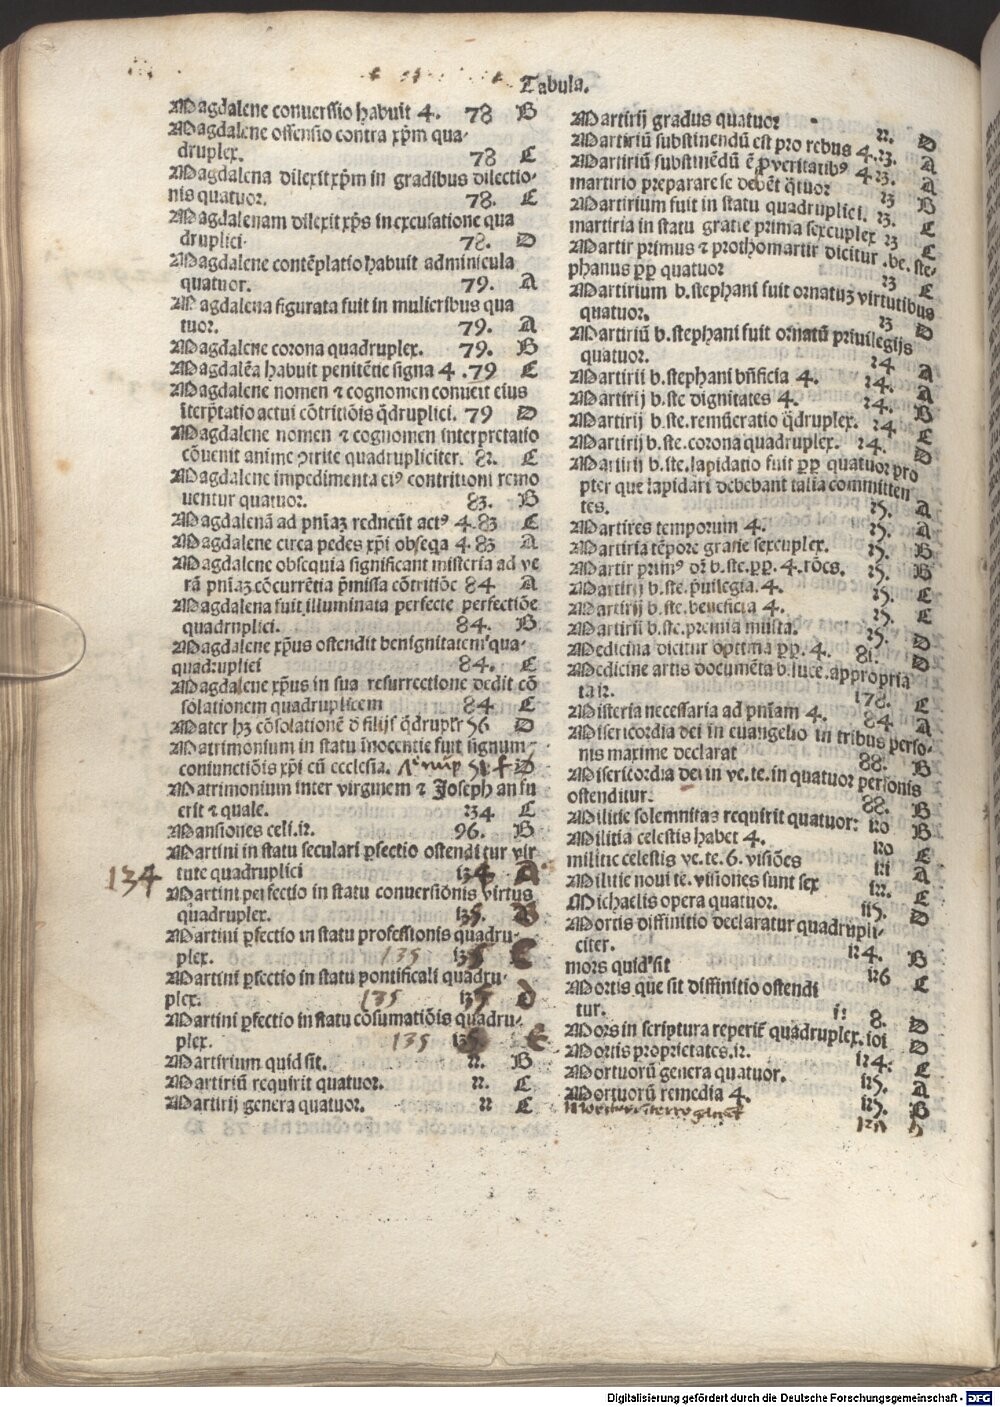 Tabula.
Magdalene conuerssio habuit 4. 78 B
Magdalene offensio contra xp̄m qua-
druplex. 78 C
Magdalena dilexit xp̄m in gradibus dilectio-
nis quatuor. 78. C
Magdalenam dilexit xp̄s in excusatione qua
druplici. 78. D
Magdalene contēplatio habuit adminicula
quatuor. 79. A
Magdalena figurata fuit in mulieribus qua
tuor. 79. A
Magdalene corona quadruplex. 79. B
Magdalēa habuit penitētie signa 4 .79 C
Magdalene nomen ⁊ cognomen conueit eius
īterp̄tatio actui cōtritiōis q̄druplici. 79 D
Magdalene nomen ⁊ cognomen interpretatio
cōuenit anime ↄtrite quadrupliciter. 82. C
Magdalene impedimenta ei⁹ contritioni remo
uentur quatuor. 83. B
Magdalenā ad pn̄iaꝫ reducūt act⁹ 4.83 C
Magdalene circa pedes xp̄i obseqa 4.83 A
Magdalene obsequia significant misteria ad ve
rā pn̄iaꝫ cōcurrētia p̄missa cōtritiōe 84 A
Magdalena fuit illuminata perfecte perfectiōe
quadruplici. 84. B
Magdalene xp̄us ostendit benignitatem qua-
quadruplici 84. C
Magdalene xp̄us in sua resurrectione dedit cō
solationem quadruplicem 84 C
Mater hꝫ cōsolationē d̄ filijs q̄druplr 56 D
Matrimonium in statu īnocentie fuit signum
coniunctiōis xp̄i cū ecclesia. D
Matrimonium inter virginem ⁊ Joseph an fu
erit ⁊ quale. 234 C
Mansiones celi.12. 96. B
Martini in statu seculari ꝑfectio ostenditur vir
134 tute quadruplici 134 A
Martini perfectio in statu conuersiōnis virtus
quadruplex. 135. B
Martini ꝑfectio in statu professionis quadru-
plex. 135 135 C
Martini ꝑfectio in statu pontificali quadru-
plex. 135 135 D
Martini ꝑfectio in statu cōsumatiōis quadru-
plex. 135 135 E
Martirium quid sit. 22. B
Martiriū requirit quatuor. 22. C
Martirij genera quatuor. 22 C
Martirij gradus quatuor 22. D
Martiriū substinendū est pro rebus 4.23. A
Martiriū substinēdū ē ꝓ veritatib⁹ 4.23. A
martirio preparare se debēt q̄tuor 23 B
Martirium fuit in statu quadruplici. 23. C
martiria in statu gratie prima sexcuplex 23 C
Martir primus ⁊ prothomartir dicitur .be. ste-
phanus ꝓꝓ quatuor 23 C
Martirium b.stephani fuit ornatuꝫ virtutibus
quatuor. 23 D
Martiriū b.stephani fuit ornatū priuilegijs
quatuor. 24 A
Martirii b.stephani bn̄ficia 4. 24. A
Martirij b.ste dignitates 4. 24. B
Martirij b.ste.remūeratio q̄druplex. 24 C
Martirij b.ste.corona quadruplex. 24. D
Martirii b.ste.lapidatio fuit ꝓꝓ quatuor pro
pter que lapidari debebant talia committen
tes. 25. A
Martires temporum 4. 25. A
Martiria tēpore gratie sexcuplex. 25. B
Martir prim⁹ dr̄ b.ste.ꝓꝓ.4.rōes. 25. B
Martirij b.ste.p̄uilegia.4. 25. C
Martirij b.ste.beneficia 4. 25. C
Martirii b.ste.premia multa. 25. D
Medicina dicitur optima ꝓꝓ. 4. 81. D
Medicine artis documēta b.luce.appropria
ta 12. 178. C
Misteria necessaria ad pn̄iam 4. 84 A
Misericordia dei in euangelio in tribus perso-
nis maxime declarat 88. B
Misericordia dei in ve.te.in quatuor personis
ostenditur. 88. B
Militie solemnitas requirit quatuor: 120 B
Militia celestis habet 4. 120 C
militie celestis ve.te.6. visiōes 121 A
Militie noui te. visiones sunt sex 122. C
Michaelis opera quatuor. 115. D
Mortis diffinitio declaratur quadrupli-
citer. 124. B
mors quid sit 126 C
Mortis que sit diffinitio ostendi
tur. 8. D
Mors in scriptura reperit̄ quadruplex.101 D
Mortis proprietates.12. 124. C
Mortuorū genera quatuor. 125. A
Mortuorū remedia 4. 125. B